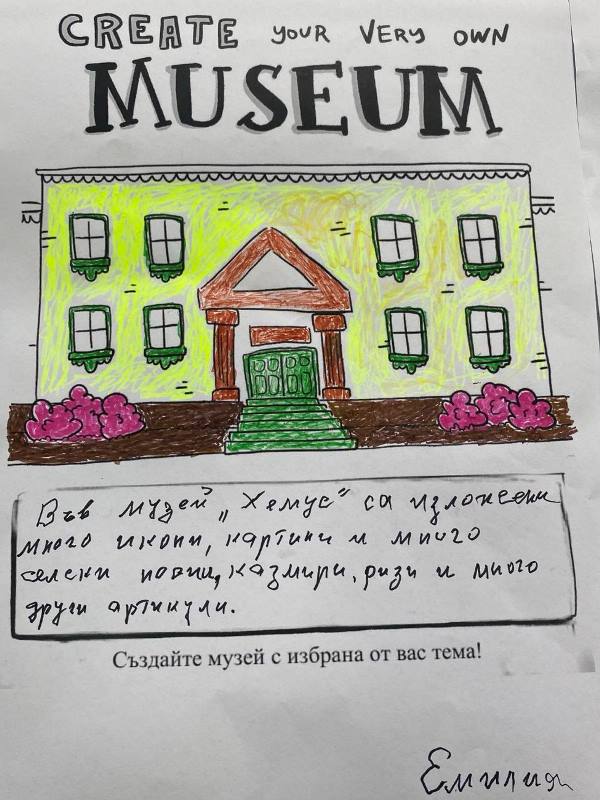 CREATE YOUR VERY OWN
MUSEUM
Във музей „Хемус“ са изложени
много икони, картини и много
селски казмири, ризи и много
други артикули.
Създайте музей с избрана от вас тема!
Емилия